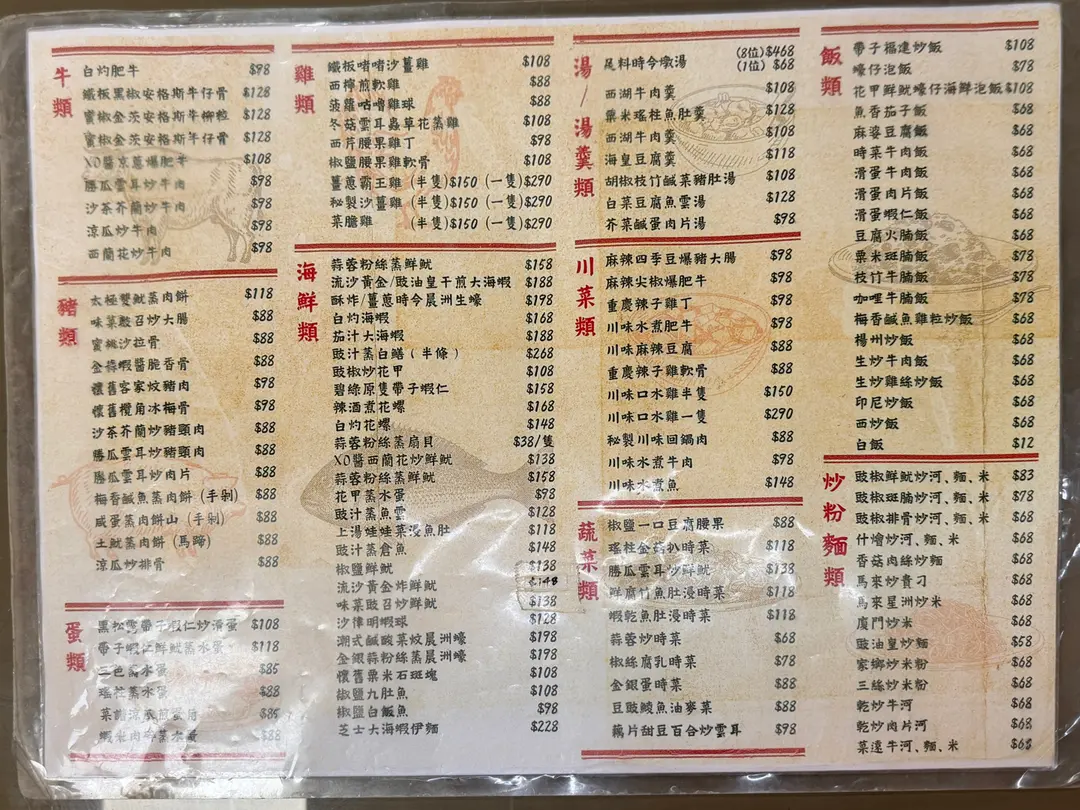 牛類
白灼肥牛 $98
鐵板黑椒安格斯牛仔骨 $128
蜜椒金茨安格斯牛柳粒 $128
蜜椒金茨安格斯牛仔骨 $128
XO醬京蔥爆肥牛 $108
勝瓜雲耳炒牛肉 $98
沙茶芥蘭炒牛肉 $98
涼瓜炒牛肉 $98
西蘭花炒牛肉 $98
豬類
太極雙魷蒸肉餅 $118
味菜豉召炒大腸 $88
蜜桃沙拉骨 $88
金蒜蝦醬脆香骨 $88
懷舊客家炆豬肉 $98
懷舊欖角冰梅骨 $98
沙茶芥蘭炒豬頸肉 $88
勝瓜雲耳炒豬頸肉 $88
勝瓜雲耳炒肉片 $88
梅香鹹魚蒸肉餅 (手剁) $88
咸蛋蒸肉餅山 (手剁) $88
土魷蒸肉餅 (馬蹄) $88
涼瓜炒排骨 $88
蛋類
黑松露帶子蝦仁炒滑蛋 $108
帶子蝦仁鮮魷蒸水蛋 $118
三色蒸水蛋 $85
瑤柱蒸水蛋 $88
菜脯 $85
蝦米肉碎蒸水蛋 $88
雞類
鐵板啫啫沙薑雞 $108
西檸煎軟雞 $88
菠蘿咕嚕雞球 $88
冬菇雲耳蟲草花蒸雞 $108
西芹腰果雞丁 $98
椒鹽腰果雞軟骨 $108
薑蔥霸王雞 (半隻)$150 (一隻)$290
秘製沙薑雞 (半隻)$150 (一隻)$290
菜膽雞 (半隻)$150 (一隻)$290
海鮮類
蒜蓉粉絲蒸鮮魷 $158
流沙黃金/豉油皇干煎大海蝦 $188
酥炸/薑蔥時令晨洲生蠔 $198
白灼海蝦 $168
茄汁大海蝦 $188
豉汁蒸白鱔 (半條) $268
豉椒炒花甲 $108
碧綠原隻帶子蝦仁 $158
辣酒煮花螺 $168
白灼花螺 $148
蒜蓉粉絲蒸扇貝 $38/隻
XO醬西蘭花炒鮮魷 $138
蒜蓉粉絲蒸鮮魷 $158
花甲蒸水蛋 $98
豉汁蒸魚雲 $128
上湯娃娃菜浸魚肚 $118
豉汁蒸倉魚 $148
椒鹽鮮魷 $138
流沙黃金炸鮮魷 $148
味菜豉召炒鮮魷 $138
沙律明蝦球 $128
潮式鹹酸菜炆晨洲蠔 $198
金銀蒜粉絲蒸晨洲蠔 $198
懷舊粟米石斑塊 $108
椒鹽九肚魚 $108
椒鹽白飯魚 $98
芝士大海蝦伊麵 $228
湯/湯羹類
足料時令燉湯 (8位)$468
(1位) $68
西湖牛肉羹 $108
粟米瑤柱魚肚羹 $128
西湖牛肉羹 $108
海皇豆腐羹 $118
胡椒枝竹鹹菜豬肚湯 $108
白菜豆腐魚雲湯 $128
芥菜鹹蛋肉片湯 $98
川菜類
麻辣四季豆爆豬大腸 $98
麻辣尖椒爆肥牛 $98
重慶辣子雞丁 $98
川味水煮肥牛 $98
川味麻辣豆腐 $88
重慶辣子雞軟骨 $88
川味口水雞半隻 $150
川味口水雞一隻 $290
秘製川味回鍋肉 $88
川味水煮牛肉 $98
川味水煮魚 $148
蔬菜類
椒鹽一口豆腐腰果 $88
瑤柱金菇扒時菜 $118
勝瓜雲耳炒鮮魷 $138
鮮腐竹魚肚浸時菜 $118
蝦乾魚肚浸時菜 $118
蒜蓉炒時菜 $68
椒絲腐乳時菜 $78
金銀蛋時菜 $88
豆豉鯪魚油麥菜 $88
藕片甜豆百合炒雲耳 $98
飯類
帶子福建炒飯 $108
蠔仔泡飯 $78
花甲鮮魷蠔仔海鮮泡飯 $108
魚香茄子飯 $68
麻婆豆腐飯 $68
時菜牛肉飯 $68
滑蛋牛肉飯 $68
滑蛋肉片飯 $68
滑蛋蝦仁飯 $68
豆腐火腩飯 $68
粟米斑腩飯 $68
枝竹牛腩飯 $68
咖喱牛腩飯 $68
梅香鹹魚雞粒炒飯 $68
楊州炒飯 $68
生炒牛肉飯 $68
生炒雞絲炒飯 $68
印尼炒飯 $68
西炒飯 $68
白飯 $12
炒粉麵類
豉椒鮮魷炒河、麵、米 $83
豉椒斑腩炒河、麵、米 $78
豉椒排骨炒河、麵、米 $68
什燴炒河、麵、米 $68
香菇肉絲炒麵 $68
馬來炒貴刁 $68
馬來星洲炒米 $68
廈門炒米 $68
豉油皇炒麵 $58
家鄉炒米粉 $68
三絲炒米粉 $68
乾炒牛河 $68
乾炒肉片河 $68
菜遠牛河、麵、米 $68